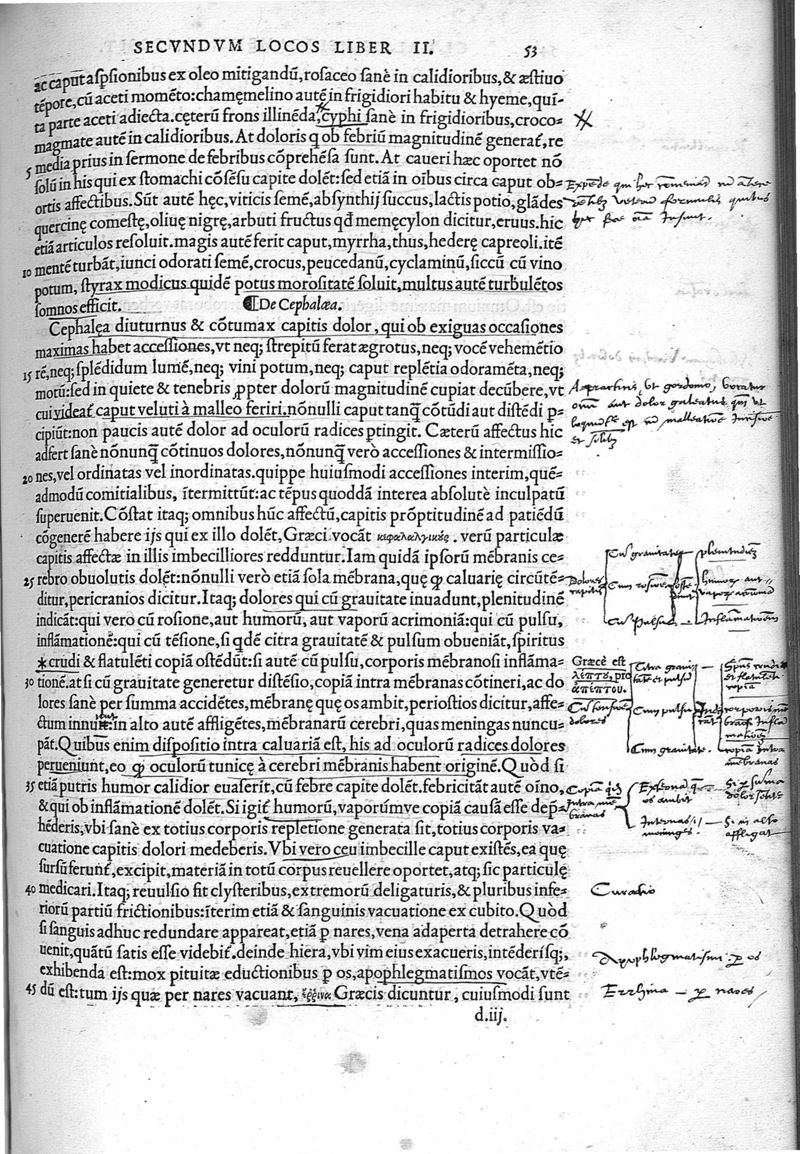 SECVNDVM LOCOS LIBER II. 53
ac caput aspsionibus ex oleo mitigandũ, rosaceo sanè in calidioribus, & æstiuo
tẽpore, cũ aceti momẽto: chamęmelino autẽ in frigidiori habitu & hyeme, quĩ-
ta parte aceti adiecta. cęterũ frons illinẽda, cyphi sanè in frigidioribus, croco-
magmate autẽ in calidioribus. At doloris q ob febriũ magnitudinẽ generat, re
5 media prius in sermone de febribus cõprehẽsa sunt. At caueri hæc oportet nõ
solũ in his qui ex stomachi cõsẽsu capite dolẽt: sed etiã in oĩbus circa caput ob-
ortis affectibus. Sũt autẽ hęc, viticis semẽ, absynthij succus, lactis potio, glãdes
quercinę comestę, oliuę nigrę, arbuti fructus qđ memęcylon dicitur, eruus. hic
etiã articulos resoluit. magis autẽ ferit caput, myrrha, thus, hederę capreoli. itẽ
10 mentẽ turbãt, iunci odorati semẽ, crocus, peucedanũ, cyclaminũ, siccũ cũ vino
potum, styrax modicus quidẽ potus morositatẽ soluit, multus autẽ turbulẽtos
somnos efficit. ¶ De Cephalæa.
Cephalęa diuturnus & cõtumax capitis dolor, qui ob exiguas occasiones
maximas habet accessiones, vt neq; strepitũ ferat ægrotus, neq; vocẽ vehemẽtio
15 rẽ, neq; splẽdidum lumẽ, neq; vini potum, neq; caput replẽtia odoramẽta, neq;
motũ: sed in quiete & tenebris ꝓpter dolorũ magnitudinẽ cupiat decũbere, vt
cui videat caput veluti à malleo feriri. nõnulli caput tanq̃ cõtũdi aut distẽdi ꝑ-
cipiũt: non paucis autẽ dolor ad oculorũ radices ꝑtingit. Cæterũ affectus hic
adfert sanè nõnunq̃ cõtinuos dolores, nõnunq̃ verò accessiones & intermissio-
20 nes, vel ordinatas vel inordinatas. quippe huiusmodi accessiones interim, quẽ-
admodũ comitialibus, ĩtermittũt: ac tẽpus quoddã interea absolutè inculpatũ
superuenit. Cõstat itaq; omnibus hũc affectũ, capitis prõptitudinẽ ad patiẽdũ
cõgenerẽ habere ijs qui ex illo dolẽt, Græci vocãt κεφαλαλγικὲς. verũ particulæ
capitis affectæ in illis imbecilliores redduntur. Iam quidã ipsorũ mẽbranis ce-
25 rebro obuolutis dolẽt: nõnulli verò etiã sola mẽbrana, quę ꝙ caluariẽ circũtẽ-
ditur, pericranios dicitur. Itaq; dolores qui cũ grauitate inuadunt, plenitudinẽ
indicãt: qui vero cũ rosione, aut humorũ, aut vaporũ acrimoniã: qui cũ pulsu,
inflãmationẽ: qui cũ tẽsione, si qdẽ citra grauitatẽ & pulsum obueniãt, spiritus
crudi & flatulẽti copiã ostẽdũt: si autẽ cũ pulsu, corporis mẽbranosi inflãma-
30 tionẽ. at si cũ grauitate generetur distẽsio, copiã intra mẽbranas cõtineri, ac do
lores sanè per summa accidẽtes, mẽbranę quę os ambit, periostios dicitur, affe-
ctum innuũt: in alto autẽ affligẽtes, mẽbranarũ cerebri, quas meningas nuncu-
pãt. Quibus enim dispositio intra caluariã est, his ad oculorũ radices dolores
perueniunt, eo ꝙ oculorũ tunicę à cerebri mẽbranis habent originẽ. Quòd si
35 etiã putris humor calidior euaserit, cũ febre capite dolẽt. febricitãt autẽ oĩno,
& qui ob inflãmationẽ dolẽt. Si igit humorũ, vaporũmve copiã causã esse depã
hẽderis, vbi sanè ex totius corporis repletione generata sit, totius corporis va-
cuatione capitis dolori medeberis. Vbi vero ceu imbecille caput existẽs, ea quę
sursũ ferunt, excipit, materiã in totũ corpus reuellere oportet, atq; sic particulę
40 medicari. Itaq; reuulsio fit clysteribus, extremorũ deligaturis, & pluribus infe-
riorũ partiũ frictionibus: ĩterim etiã & sanguinis vacuatione ex cubito. Quòd
si sanguis adhuc redundare appareat, etiã ꝑ nares, vena adaperta detrahere cõ
uenit, quãtũ satis esse videbit. deinde hiera, vbi vim eius exacueris, intẽderĩsq;,
exhibenda est: mox pituitæ eductionibus ꝑ os, apophlegmatismos vocãt, vtẽ-
45 dũ est: tum ijs quæ per nares vacuant, ἔῤῥινα Græcis dicuntur, cuiusmodi sunt
d.iij.
Dolores capitis
Cũ grauitate plenitudinẽ
Cum rosione
Cũ Pulsu Inflãmationem
Græcè est
λεπτοῦ, pro
ἀπέπτου.
dolores
Cum pulsu
Cum grauitate.
Curatio
Apophlegmatismi ꝑ os
Errhina – ꝑ nares